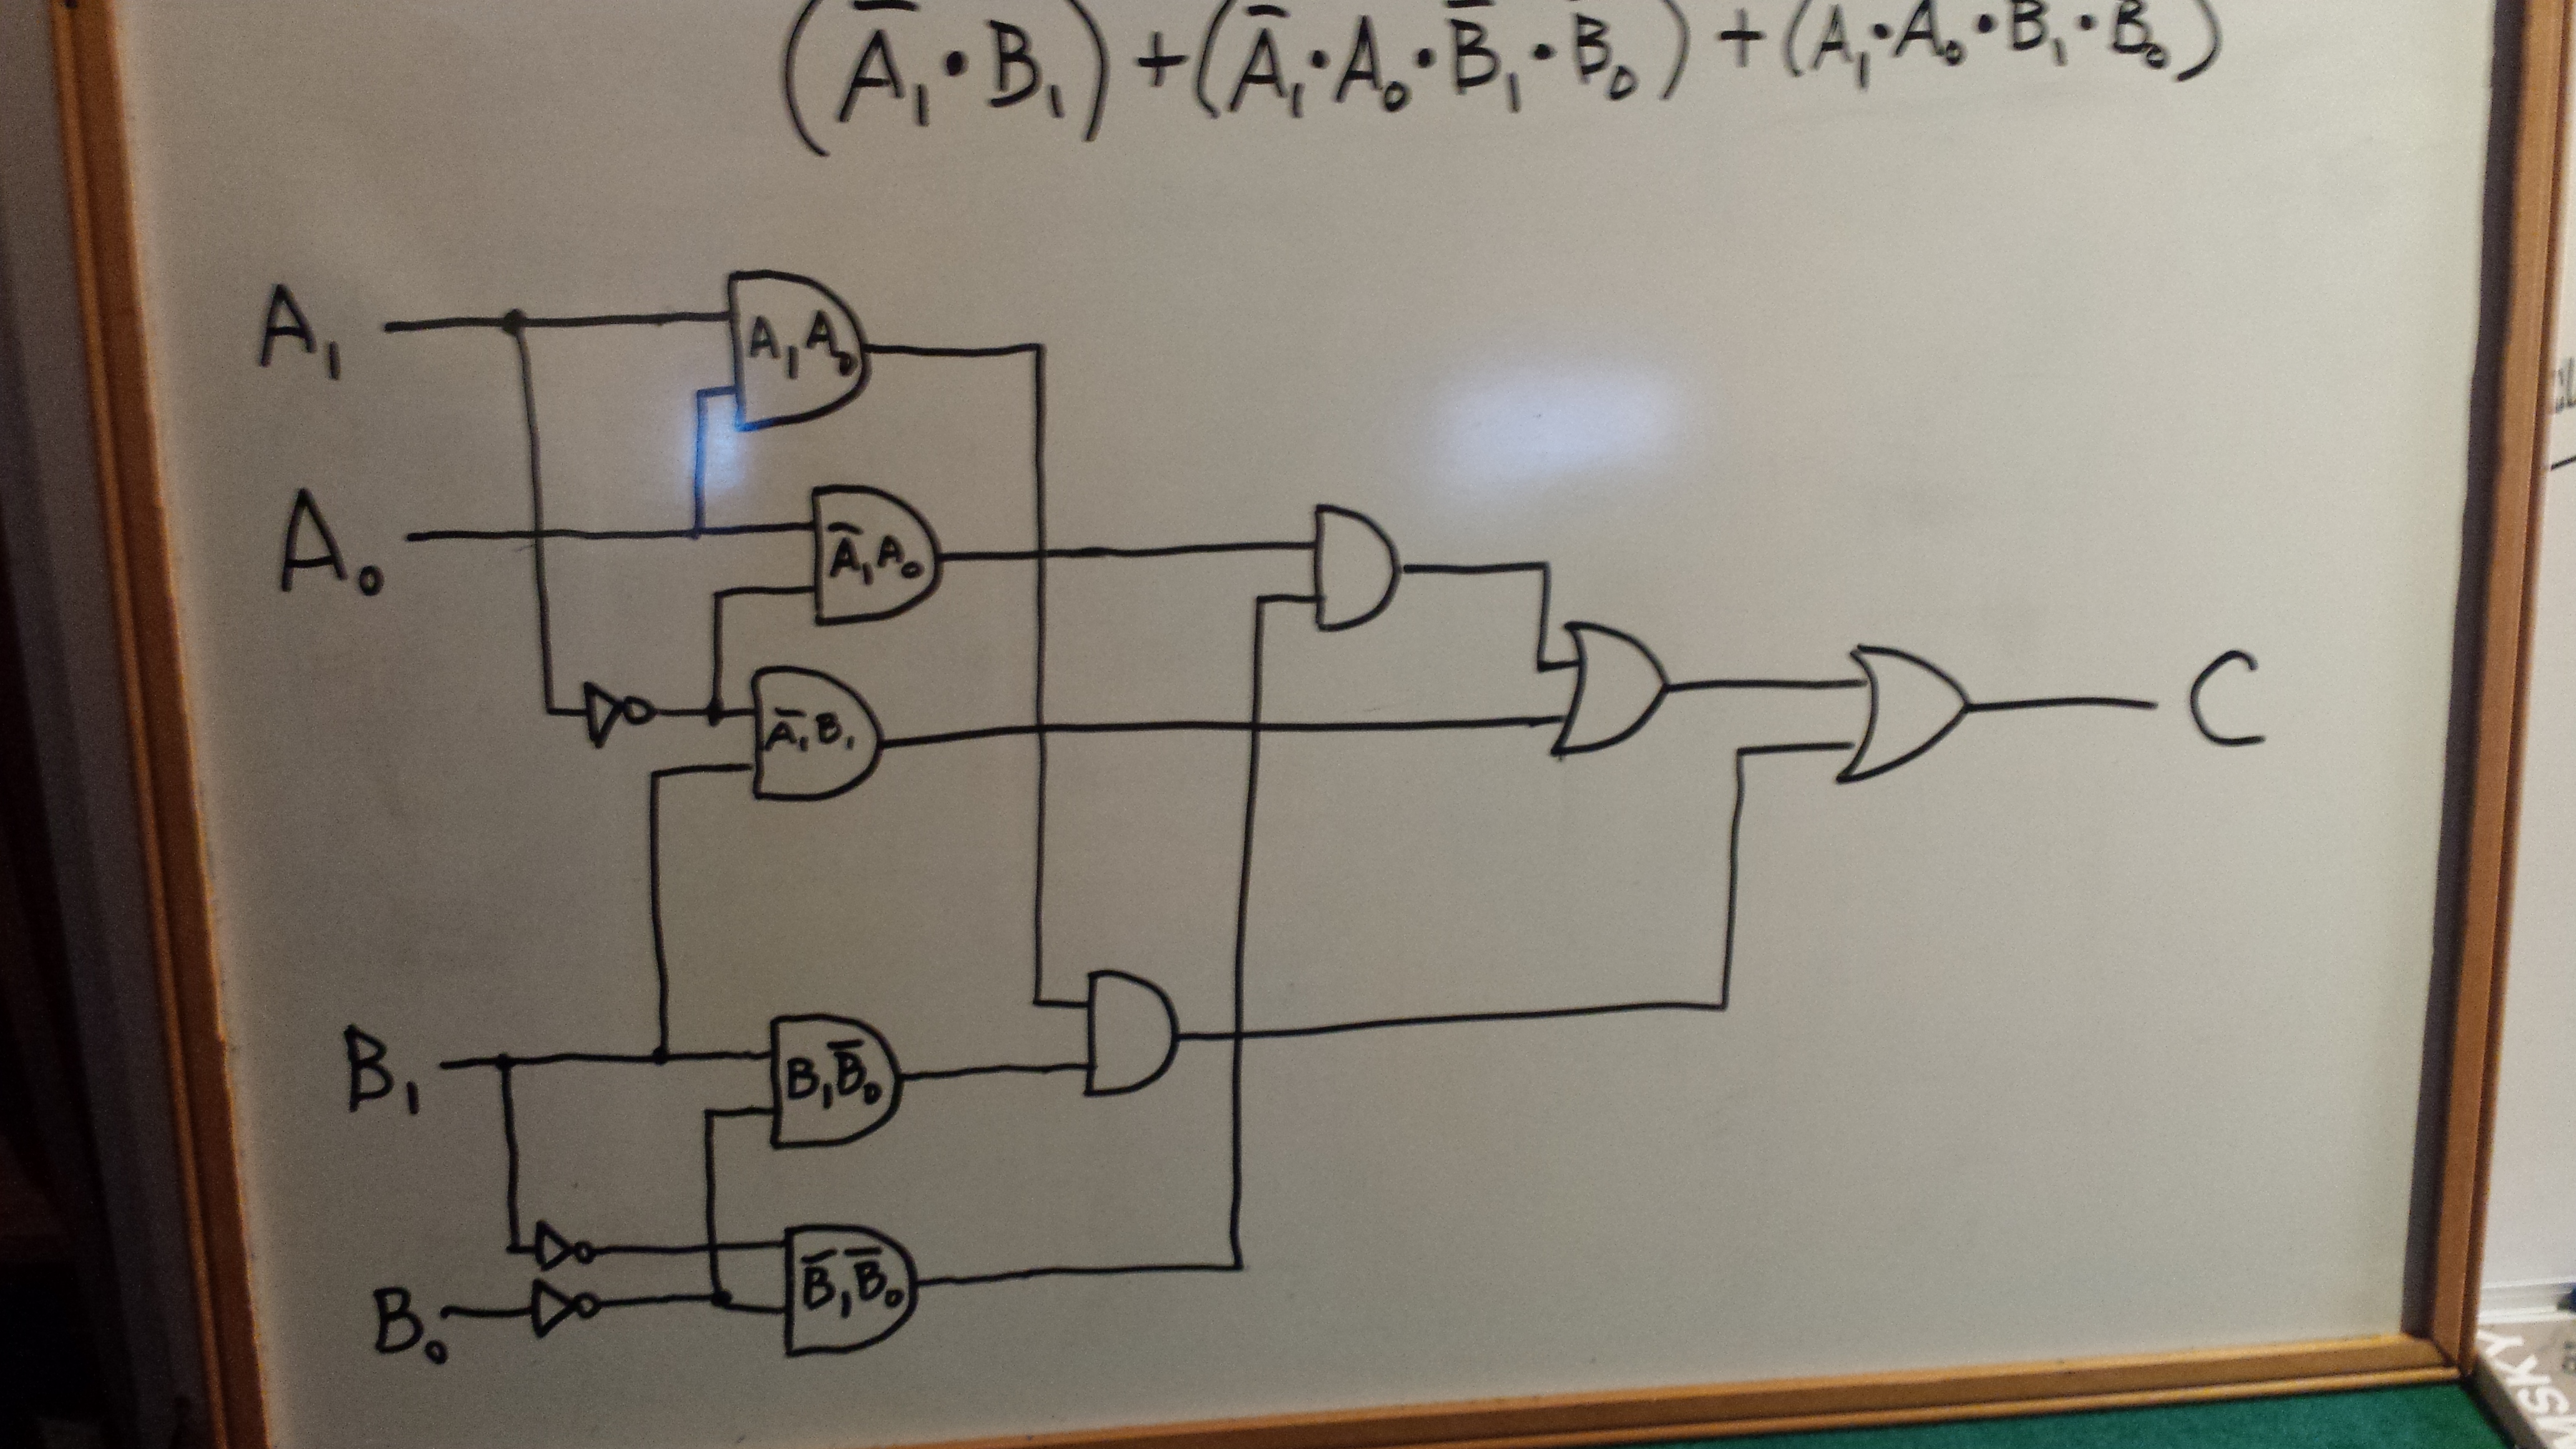 (A̅₁·B₁)+(A̅₁·A₀·B̅₁·B̅₀)+(A₁·A₀·B₁·B̅₀)
A₁
A₁A₀
A₀
A̅₁A₀
A̅₁B₁
C
B₁
B₁B̅₀
B̅₁B̅₀
B₀
SKY